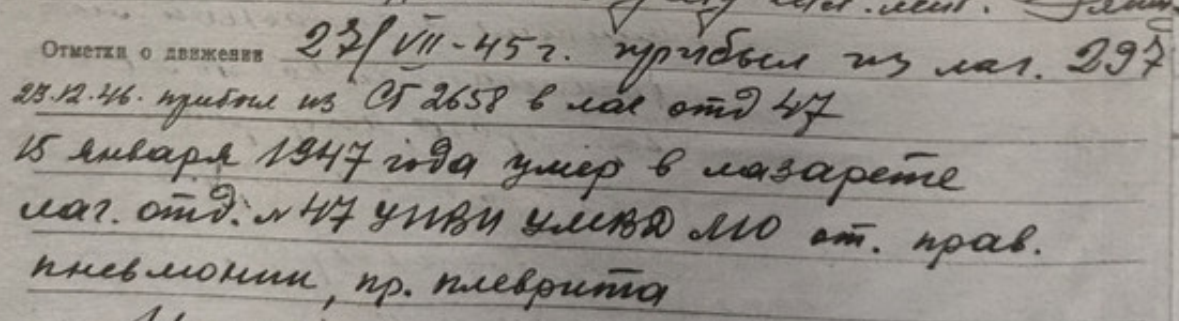 Отметки о движении 27/VII-45 г. прибыл из лаг. 297
23.12.46. прибыл из СГ 2658 в лаг отд 47
15 января 1947 года умер в лазарете
лаг. отд. № 47 УПВИ УМВД МО от. прав.
пневмонии, пр. плеврита